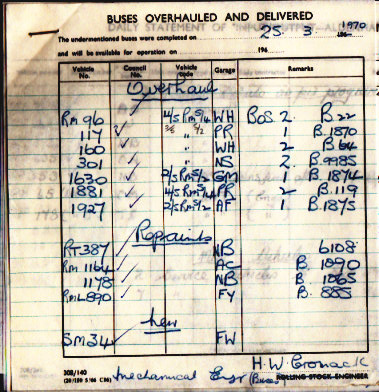 BUSES OVERHAULED AND DELIVERED
The undermentioned buses were completed on 25 3 1970
and will be available for operation on 196
Vehicle No. Council No. Vehicle code Garage Remarks
Overhaul
RM 96 WH BOS 2. B 22
117 ✓ " PR 1 B.1870
160 " WH 2 B 64
301 ✓ " NS 2. B.9985
1630 ✓ 2/5 RM5/2 GM 1 B.1874
1881 ✓ PR 2 B.119
1927 ✓ 2/5 RM5/2 AF 1 B.1875
Repaints
RT 387 ✓ NB 6108
RM 1164 ✓ AC B. 1090
1178 ✓ NB B. 1065
RML 890 ✓ FY B. 885
New
SM 34 ✓ FW
H. W. Cronack
30B/140 Mechanical Engr (Buses) ROLLING STOCK ENGINEER